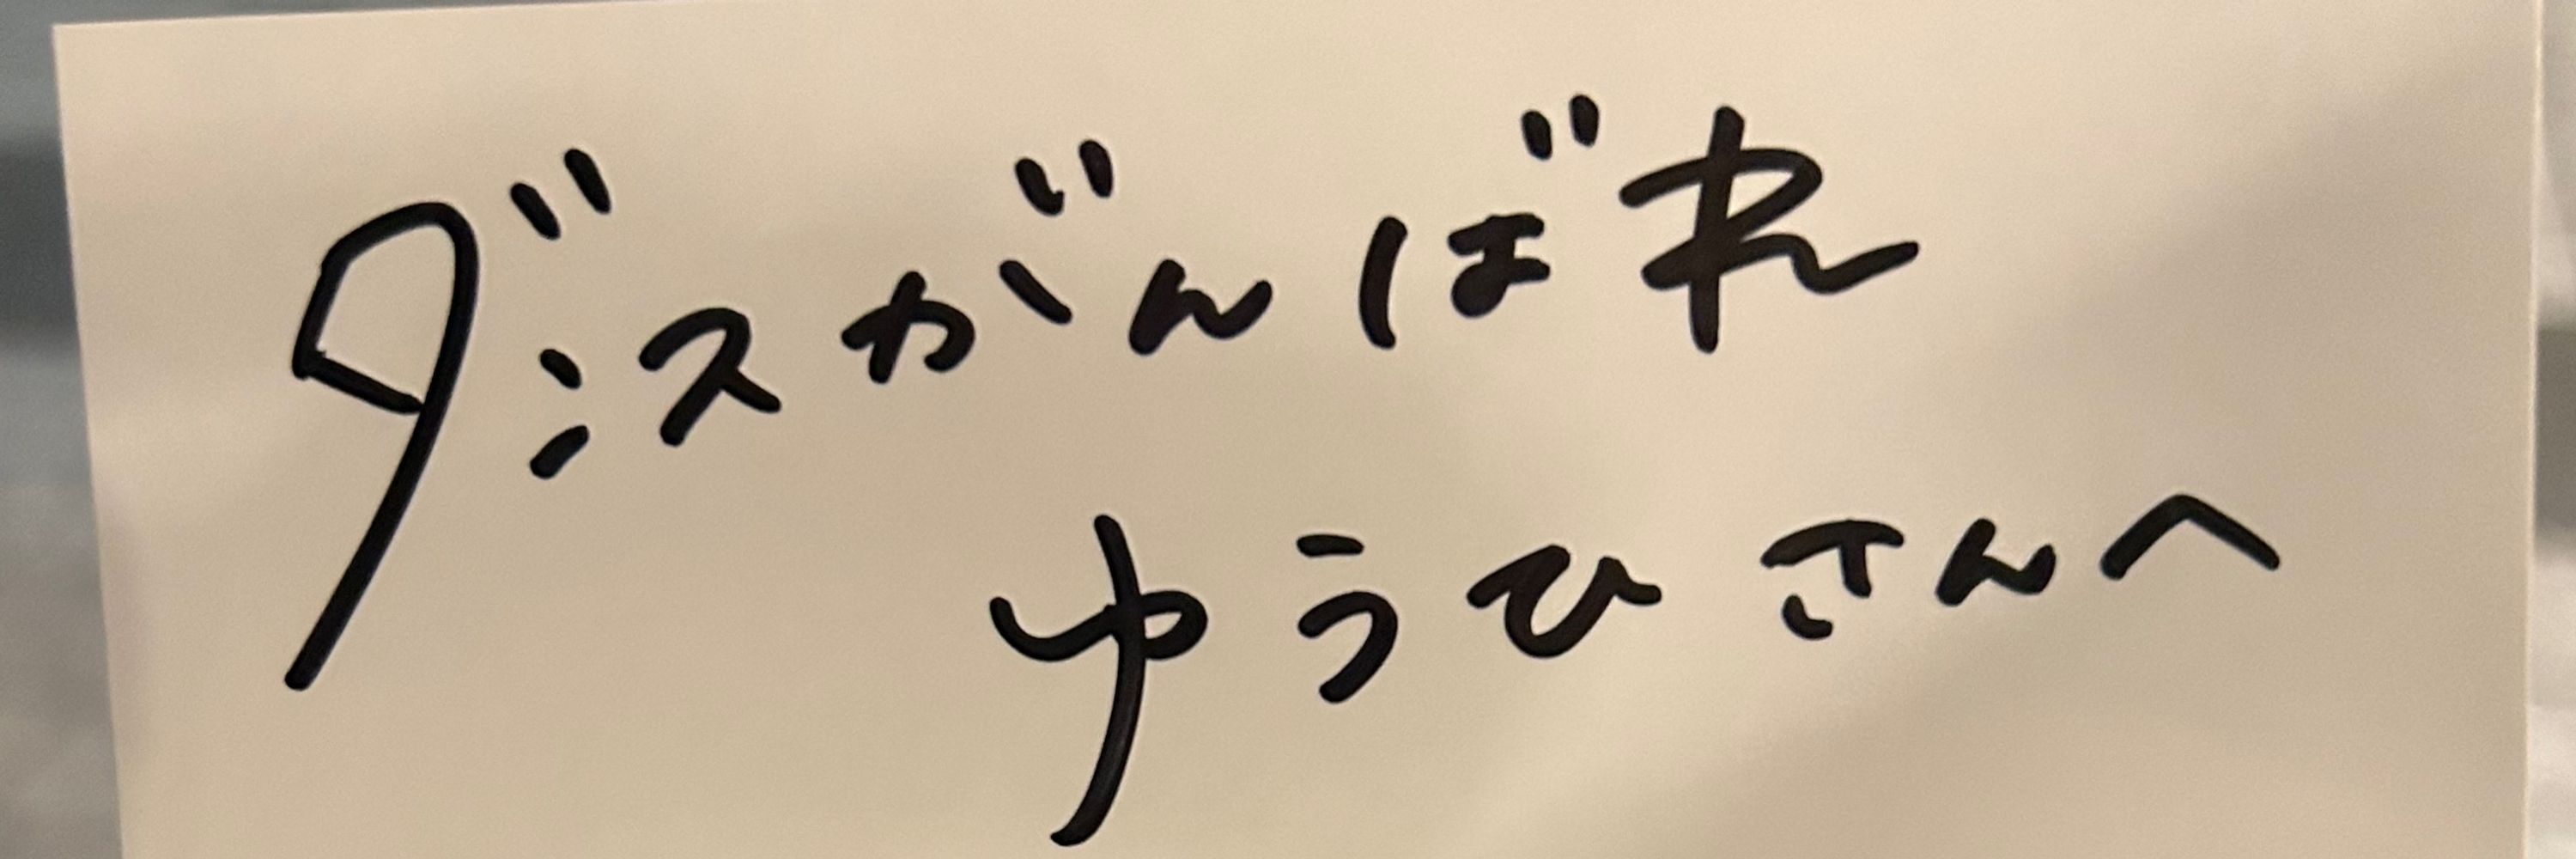 ダンスがんばれ
ゆうひさんへ